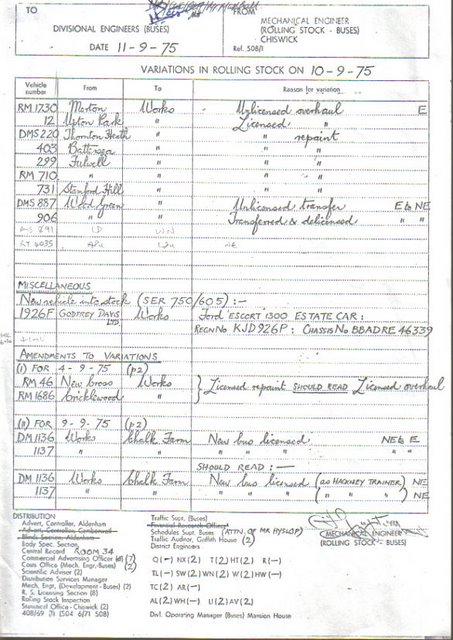 TO
FROM
DIVISIONAL ENGINEERS (BUSES)
MECHANICAL ENGINEER
(ROLLING STOCK - BUSES)
CHISWICK
DATE 11-9-75
Ref. 508/1
VARIATIONS IN ROLLING STOCK ON 10-9-75
Vehicle number From To Reason for variation
RM 1730 Merton Works Unlicensed overhaul E
12 Upton Park " Licensed "
DMS 220 Thornton Heath " " repaint
403 Battersea " " "
299 Fulwell " " "
RM 710 " " " "
731 Stamford Hill " " "
DMS 887 Wood Green " Unlicensed transfer E to NE
906 " " Transferred & delicensed " "
MISCELLANEOUS
New vehicle into stock (SER 750/605) :-
1926F GODFREY DAVIS LTD Works Ford 'ESCORT' 1300 ESTATE CAR:
REGN NO KJD 926P: CHASSIS NO BBADRE 46339
AMENDMENTS TO VARIATIONS
(I) FOR 4-9-75 (p2)
RM 46 New Cross Works } Licensed repaint SHOULD READ Licensed overhaul
RM 1686 Cricklewood
(II) FOR 9-9-75 (p2)
DM 1136 Works Chalk Farm New bus licensed NE to E
1137 " " " " " " "
SHOULD READ :-
DM 1136 Works Chalk Farm New bus licensed (as HACKNEY TRAINER) NE
1137 " " " " " ( " " " ) NE
(MECHANICAL ENGINEER
(ROLLING STOCK - BUSES)
DISTRIBUTION
Advert. Controller, Aldenham
Advert. Controller, Camberwell
Blinds Section, Aldenham
Body Spec. Section,
Central Record ROOM 34
Commercial Advertising Officer (7)
Costs Office (Mech. Engr.-Buses) (2)
Scientific Adviser (2)
Distribution Services Manager
Mech. Engr. (Development - Buses) (2)
R. S. Licensing Section (8)
Rolling Stock Inspection
Statistical Office - Chiswick (2)
408/69 (1) (504 6/71 508)
Traffic Supt. (Buses)
Financial Research Officer
Schedules Supt. Buses (ATTN. OF MR HYSLOP)
Traffic Auditor, Griffith House (2)
District Engineers
Q (-) NX (2) T (2) HT (2) R (-)
TL (-) SW (2) WN (2) W (2) HW (-)
TC (2) AR (-)
AL (2) WH (-) U (2) AV (2)
Divl. Operating Manager (Buses) Mansion House